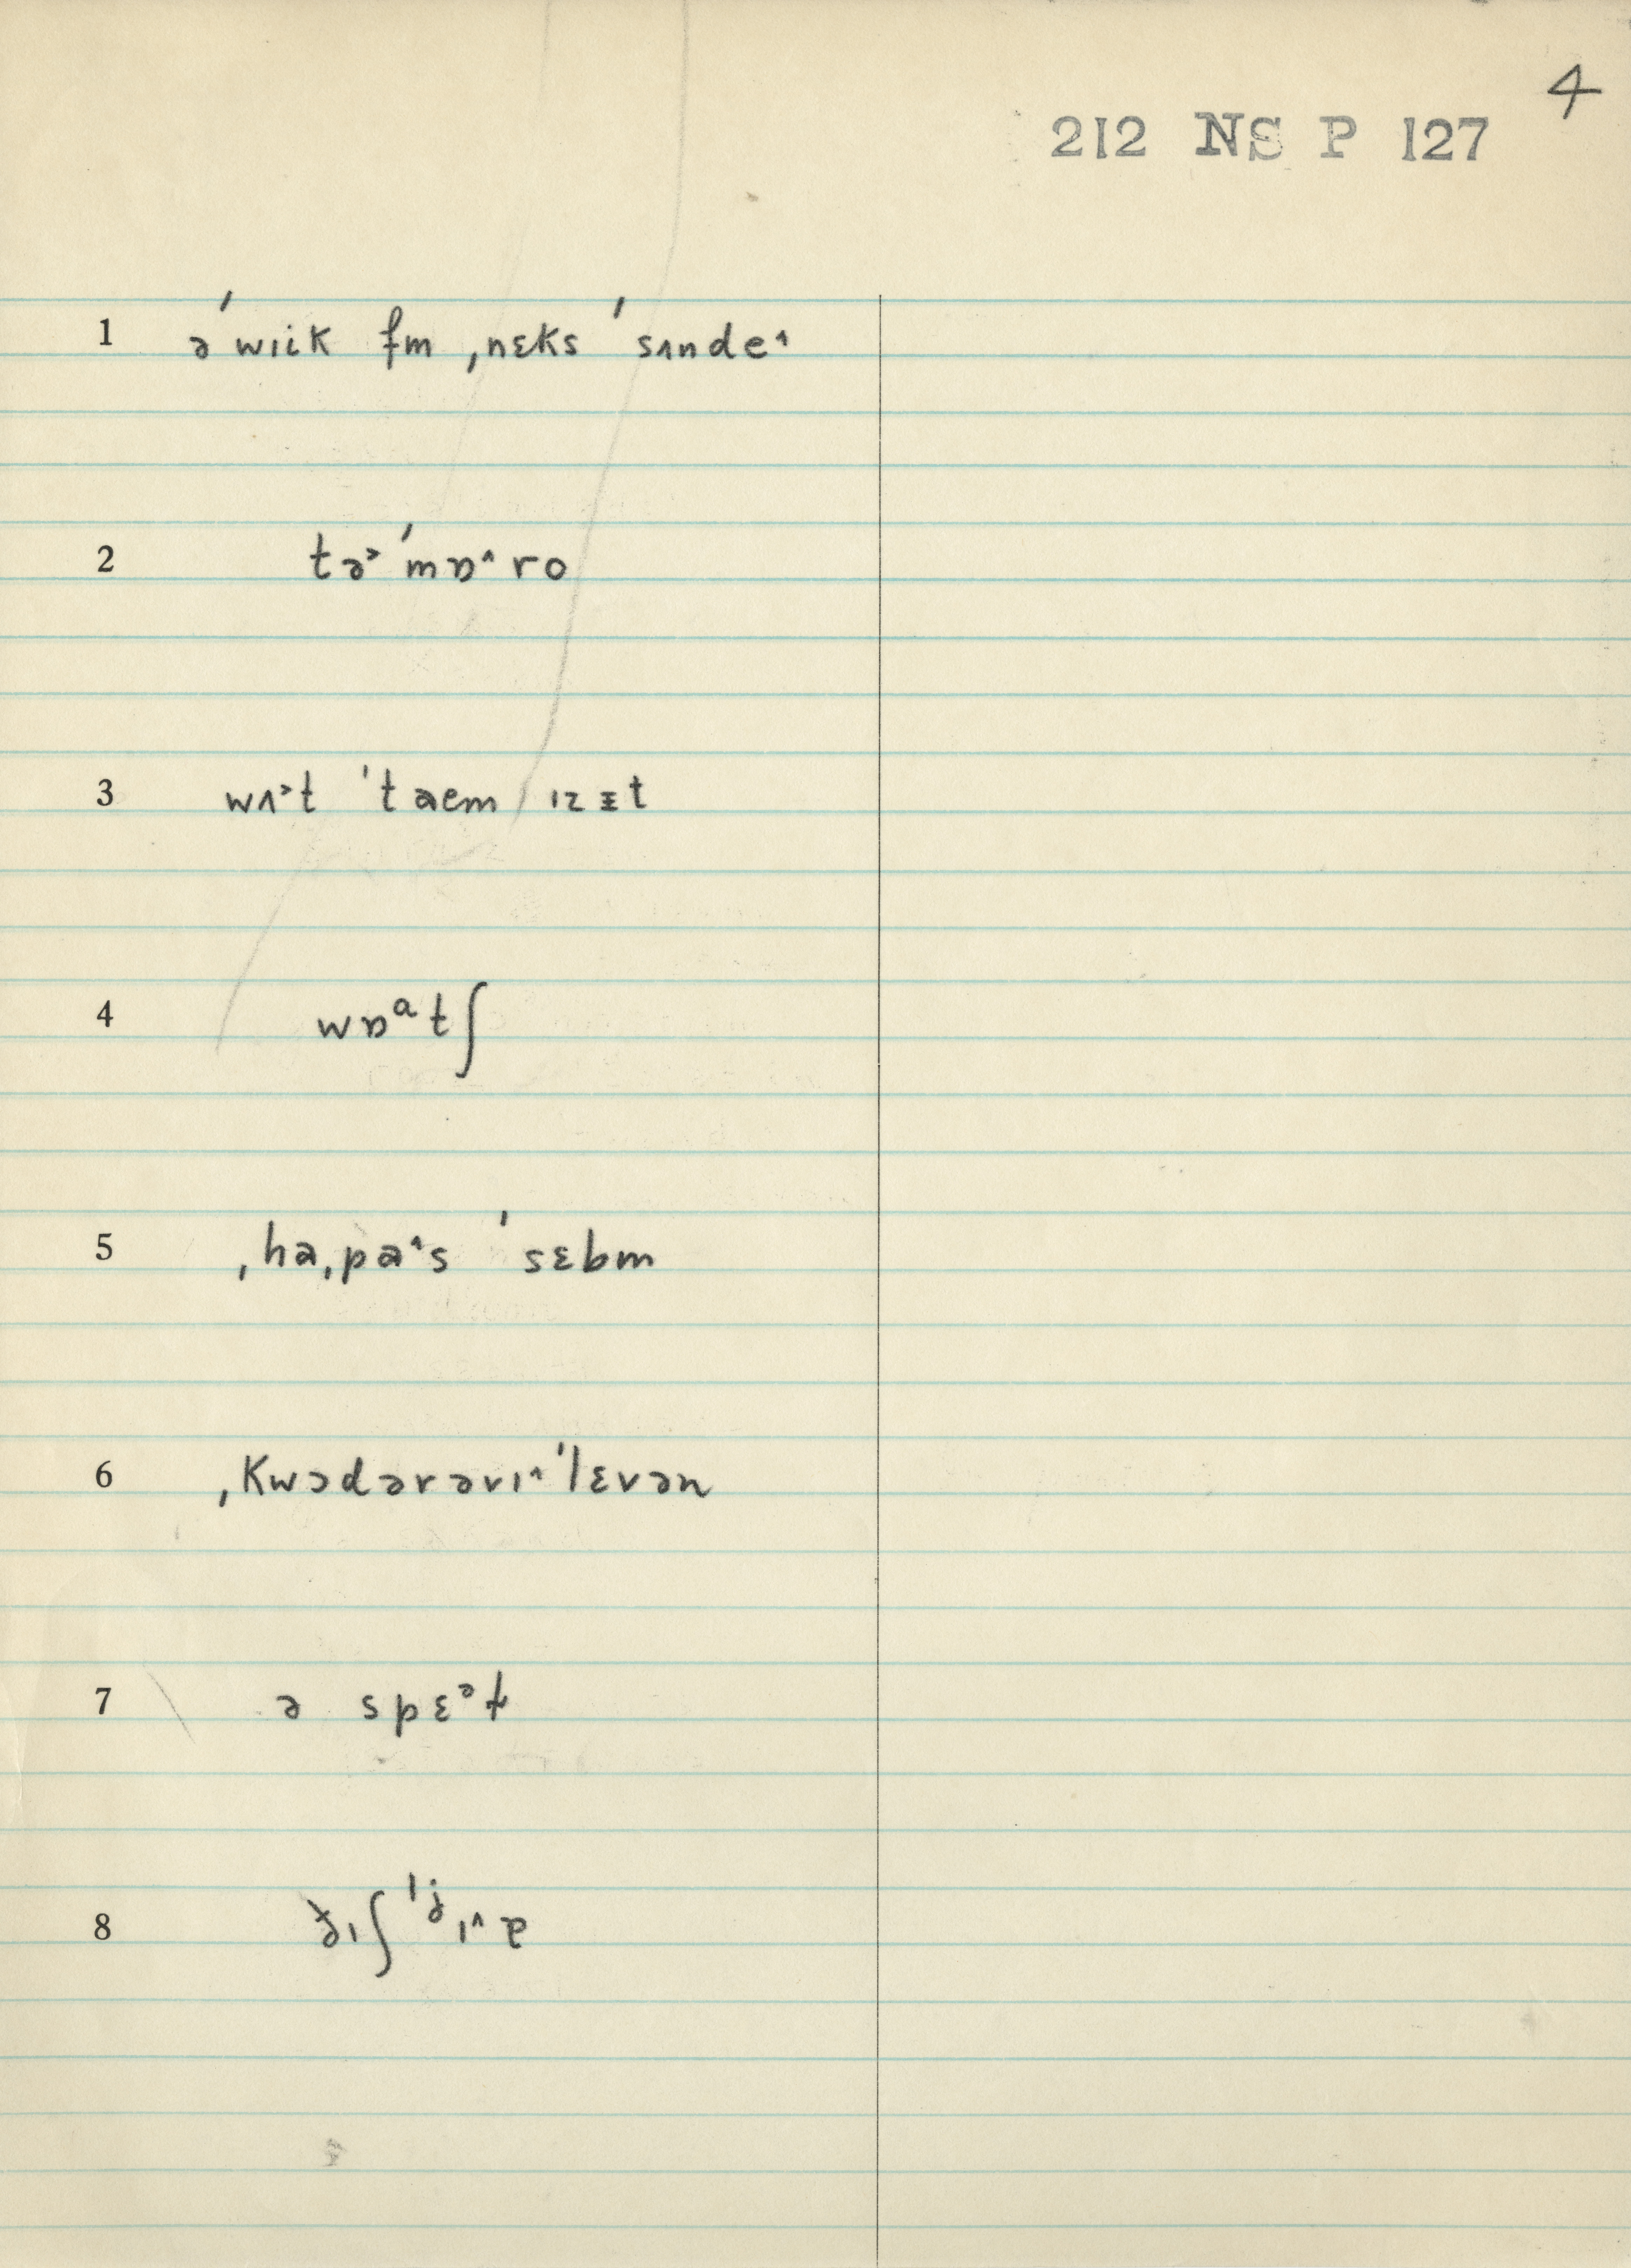 4
212 NS P 127
1 əˈwɪik fm ˌnɛks ˈsʌnde˄
2 tə˃ˈmɒ˄ro
3 wʌ˃t ˈtaem ɪz ɪt
4 wɒᵃt∫
5 ˌhaˌpa˄s ˈsɛbm
6 ˌkwɔdərəvɪ˄ˈlɛvən
7 ə spɛᵊɫ
8 ɟɪ∫ˈjɪ˄ɐ